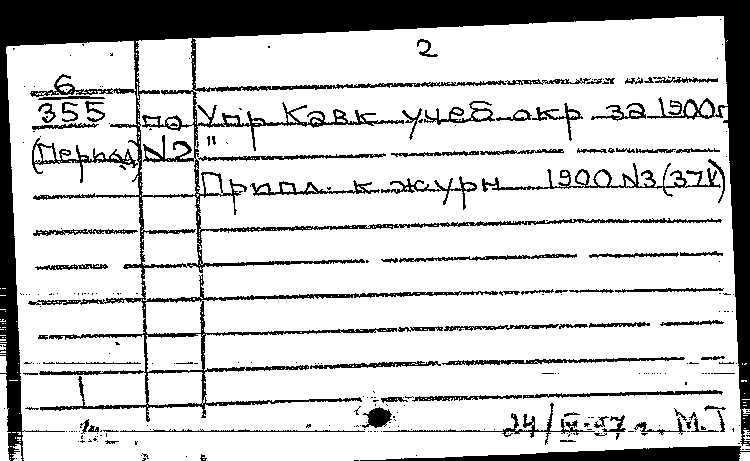 2
6
355 по Упр Кавк учеб окр за 1900г
(Период) N2 "
Прилл. к журн 1900 N3 (37V)
24/IX-57 г. М.Т.